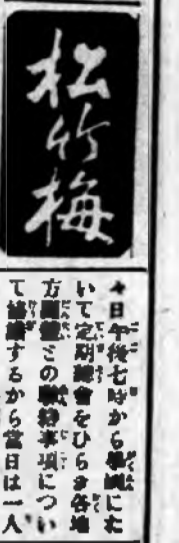 松竹梅
今日午後七時から
いて定期總會をひらき各地
方との事項につい
て協議するから當日は一人